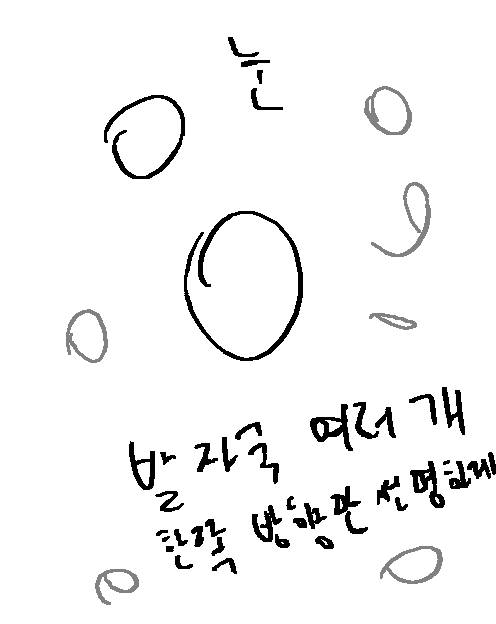 눈
발자국 여러 개
한쪽 방향만 선명하게